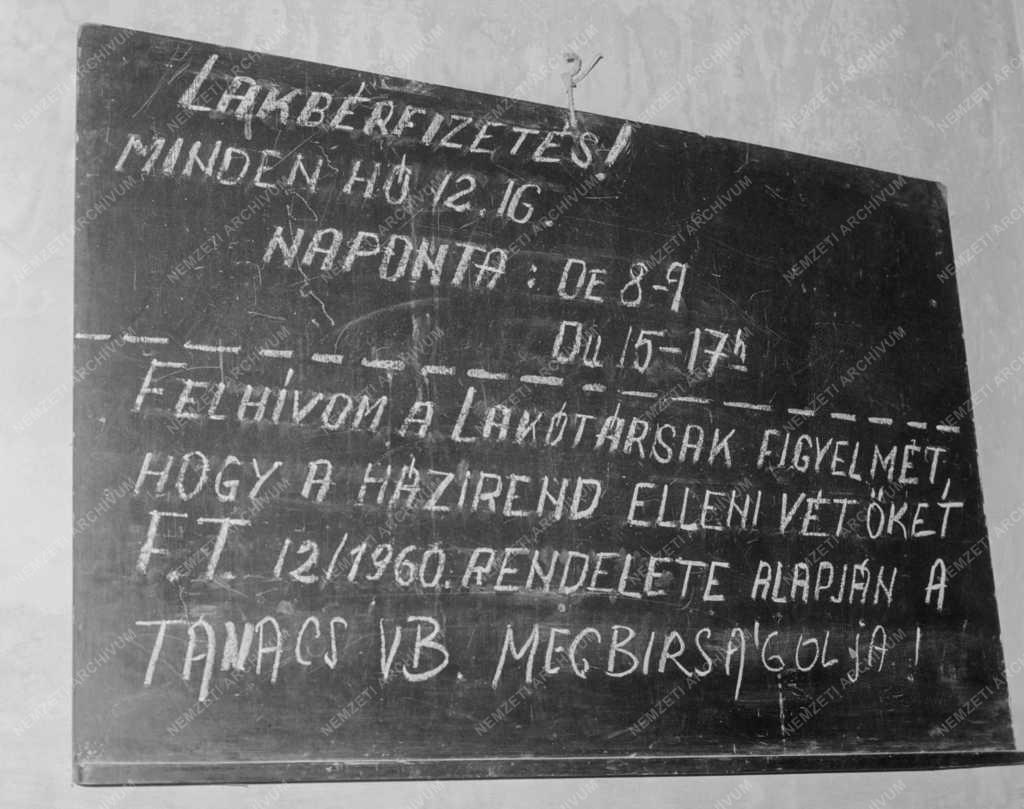 LAKBÉRFIZETÉS!
MINDEN HÓ 12.16.
NAPONTA: DE 8-9
DU 15-17h
FELHÍVOM A LAKÓTÁRSAK FIGYELMÉT,
HOGY A HÁZIREND ELLENI VÉTŐKET
F.T. 12/1960. RENDELETE ALAPJÁN A
TANÁCS VB. MEGBIRSÁGOLJA!
NEMZETI ARCHÍVUM